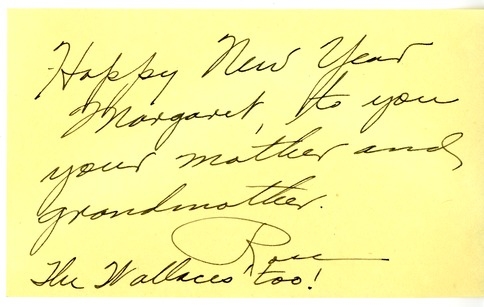 Happy New Year
Margaret, to you
your mother and
grandmother.
Rose
The Wallaces too!